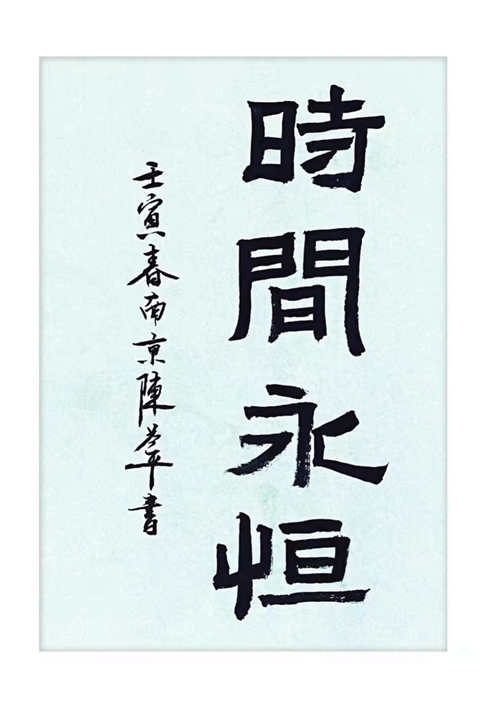 時間永恒
壬寅春南京陳萍書